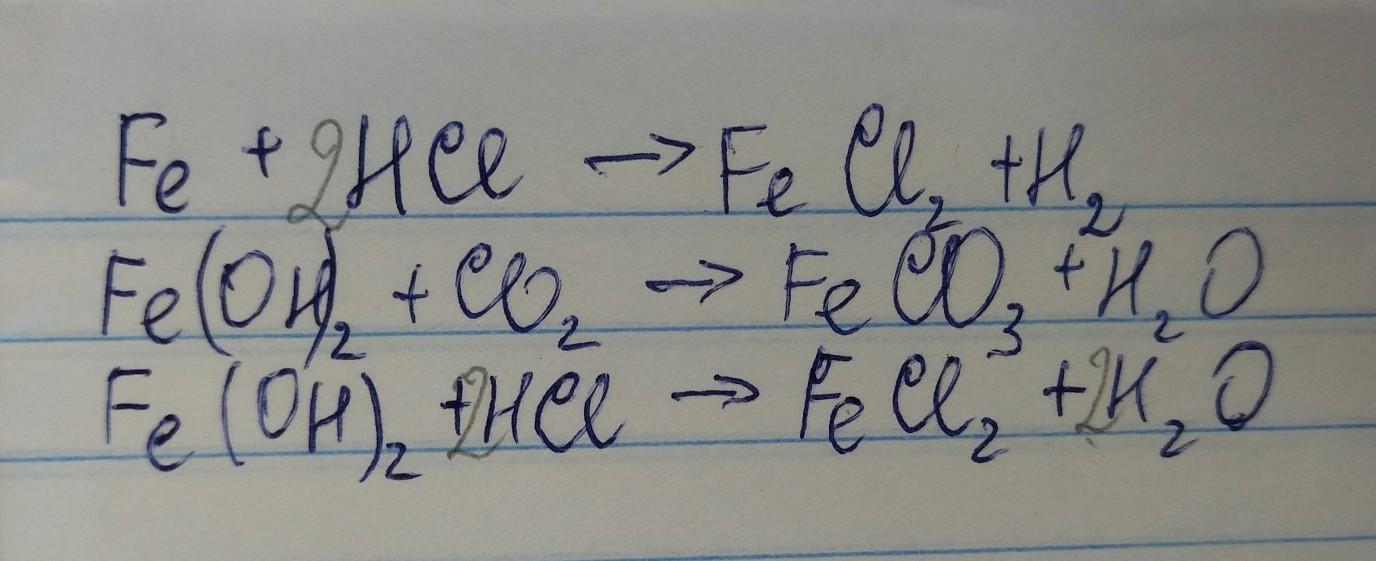 Fe + 2HCl → FeCl₂ + H₂
Fe(OH)₂ + CO₂ → FeCO₃ + H₂O
Fe(OH)₂ + 2HCl → FeCl₂ + 2H₂O